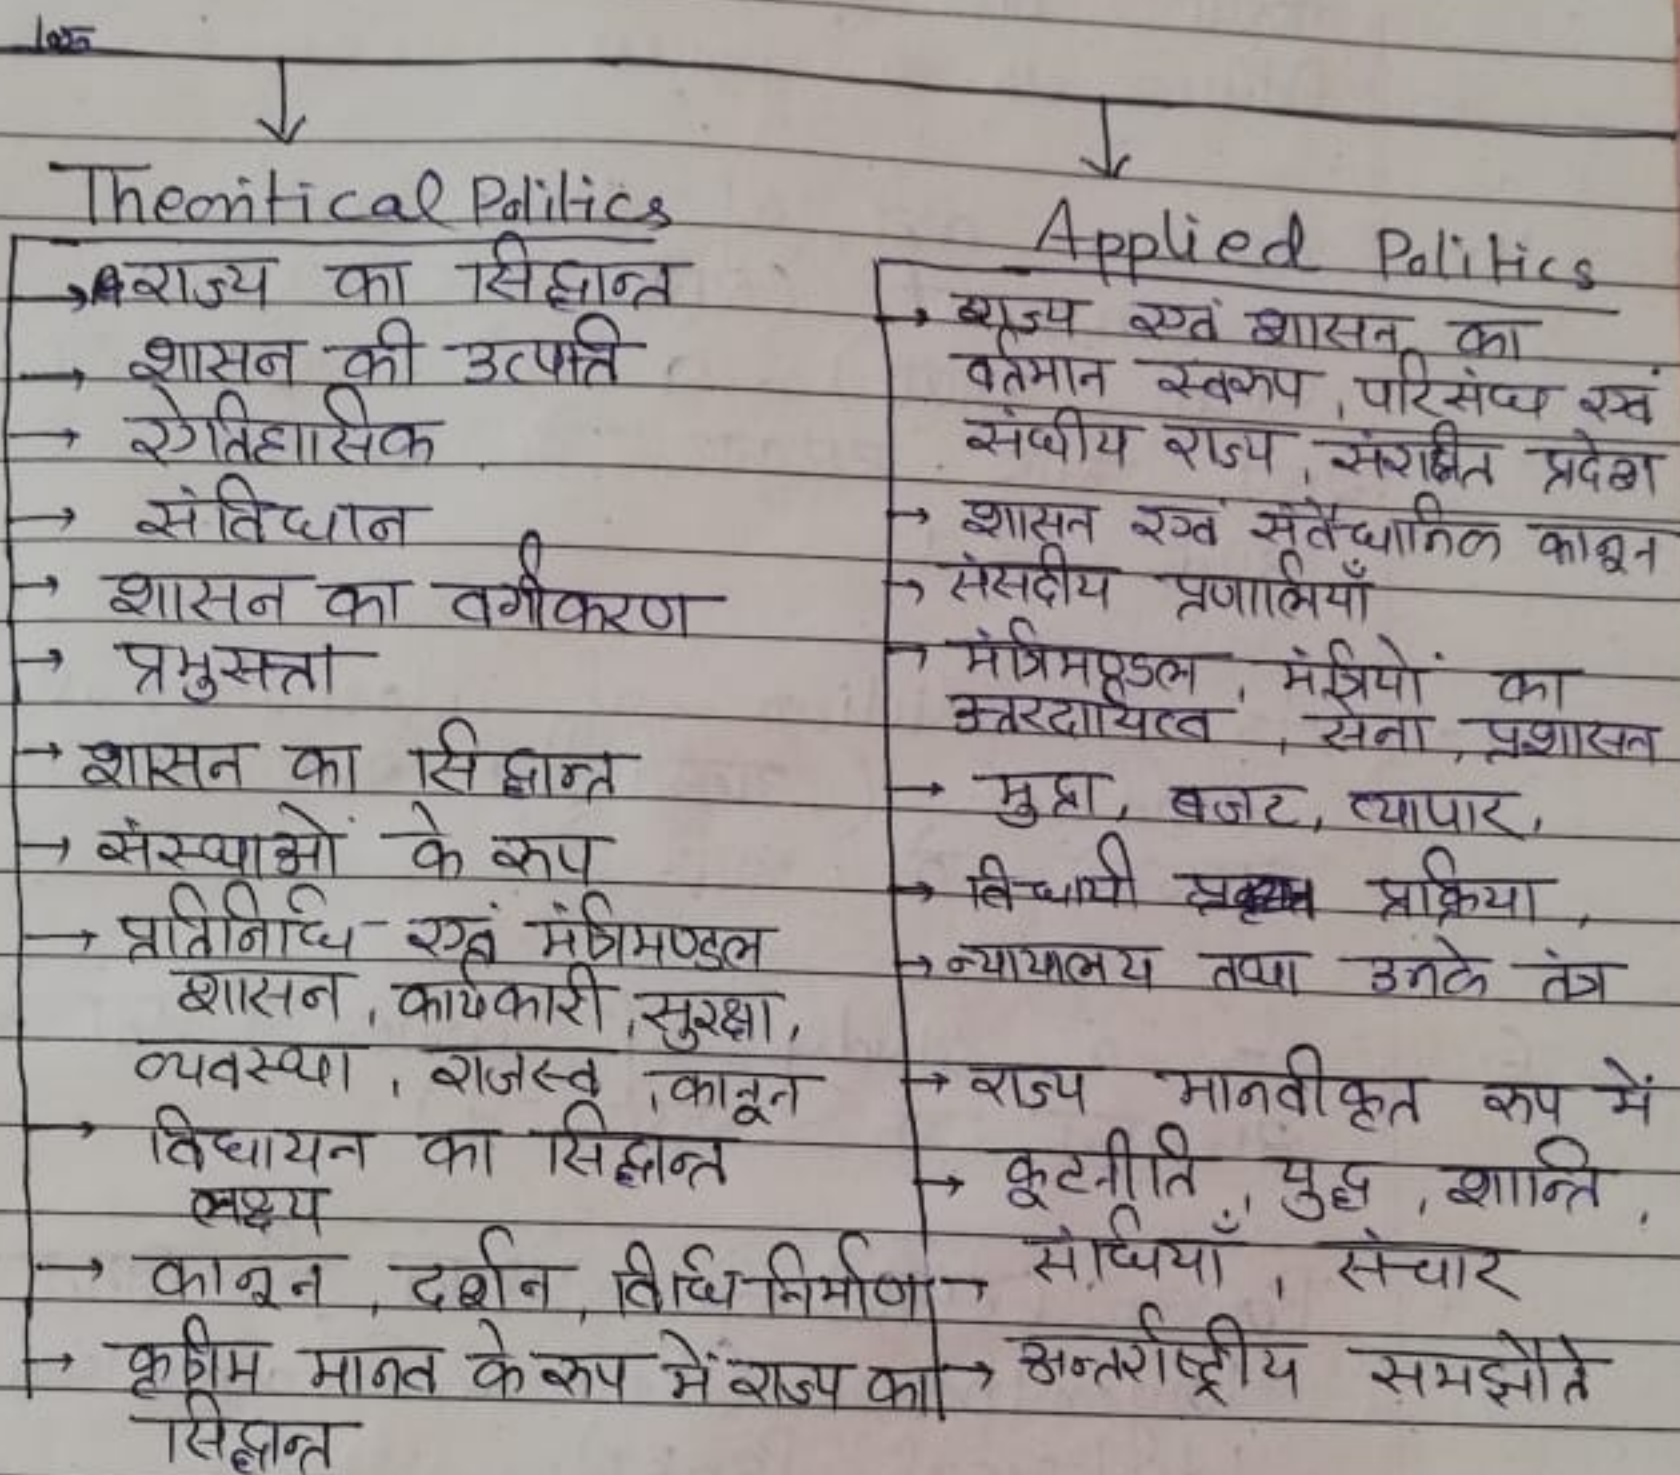 Theoritical Politics
राज्य का सिद्धान्त
शासन की उत्पति
ऐतिहासिक
संविधान
शासन का वर्गीकरण
प्रभुसत्ता
शासन का सिद्धान्त
संस्थाओं के रूप
प्रतिनिधि एवं मंत्रिमण्डल
शासन, कार्यकारी, सुरक्षा,
व्यवस्था, राजस्व, कानून
विधायन का सिद्धान्त
लक्ष्य
कानून, दर्शन, विधि निर्माण
कृत्रिम मानव के रूप में राज्य का
सिद्धान्त
Applied Politics
राज्य एवं शासन का
वर्तमान स्वरूप, परिसंघ एवं
संघीय राज्य, संरक्षित प्रदेश
शासन एवं संवैधानिक कानून
संसदीय प्रणालियाँ
मंत्रिमण्डल, मंत्रियों का
उत्तरदायित्व, सेना, प्रशासन
मुद्रा, बजट, व्यापार,
विधायी प्रक्रिया,
न्यायालय तथा उनके तंत्र
राज्य मानवीकृत रूप में
कूटनीति, युद्ध, शान्ति,
संधियाँ, संचार
अन्तर्राष्ट्रीय समझौते